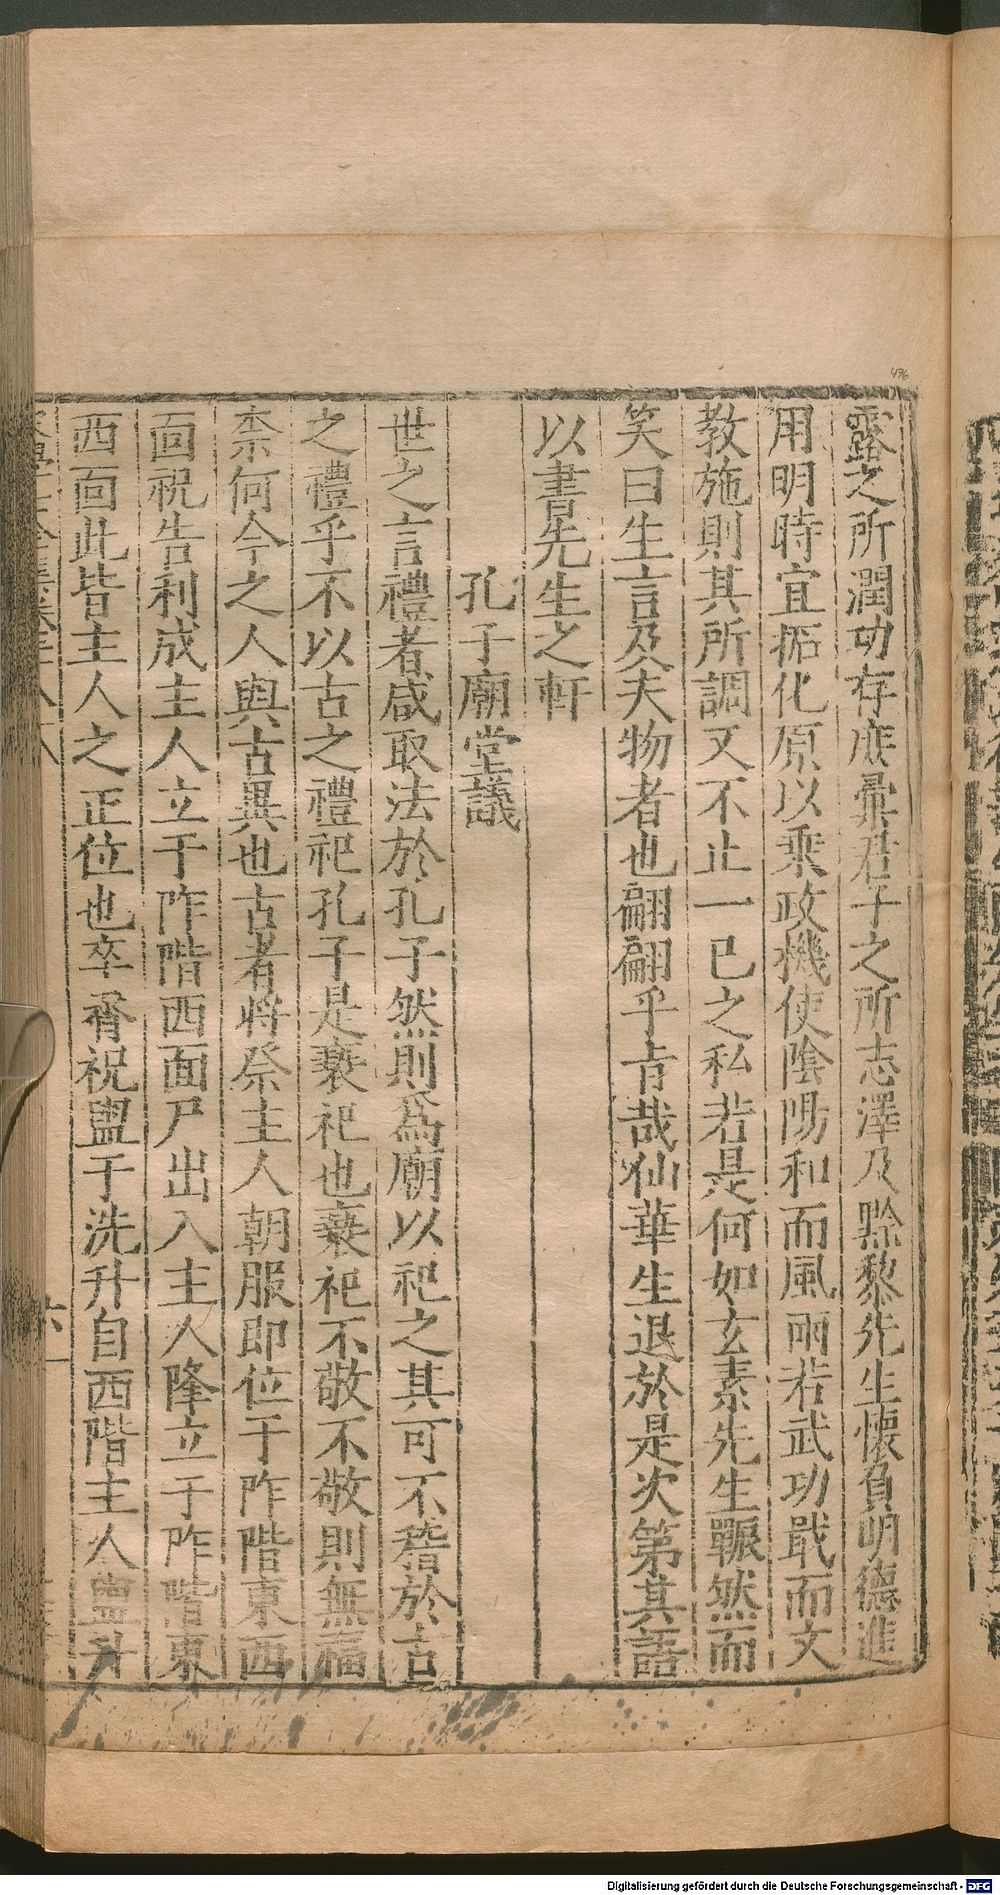 露之所潤功存庶彙君子之所志澤及黔黎先生懷負明德進
用明時宜拓化原以乘政機使陰陽和而風雨若武功戢而文
教施則其所調又不止一已之私若是何如玄素先生囅然而
笑曰生言及夫物者也翩翩乎旨哉仙華生退於是次第其語
以書先生之軒
孔子廟堂議
世之言禮者咸取法於孔子然則為廟以祀之其可不稽於古
之禮乎不以古之禮祀孔子是褻祀也褻祀不敬不敬則無福
柰何今之人與古異也古者將祭主人朝服即位于阼階東西
面祝告利成主人立于阼階西面尸出入主人降立于阼階東
西面此皆主人之正位也卒脀祝盥于洗升自西階主人盥升
476
Digitalisierung gefördert durch die Deutsche Forschungsgemeinschaft - DFG